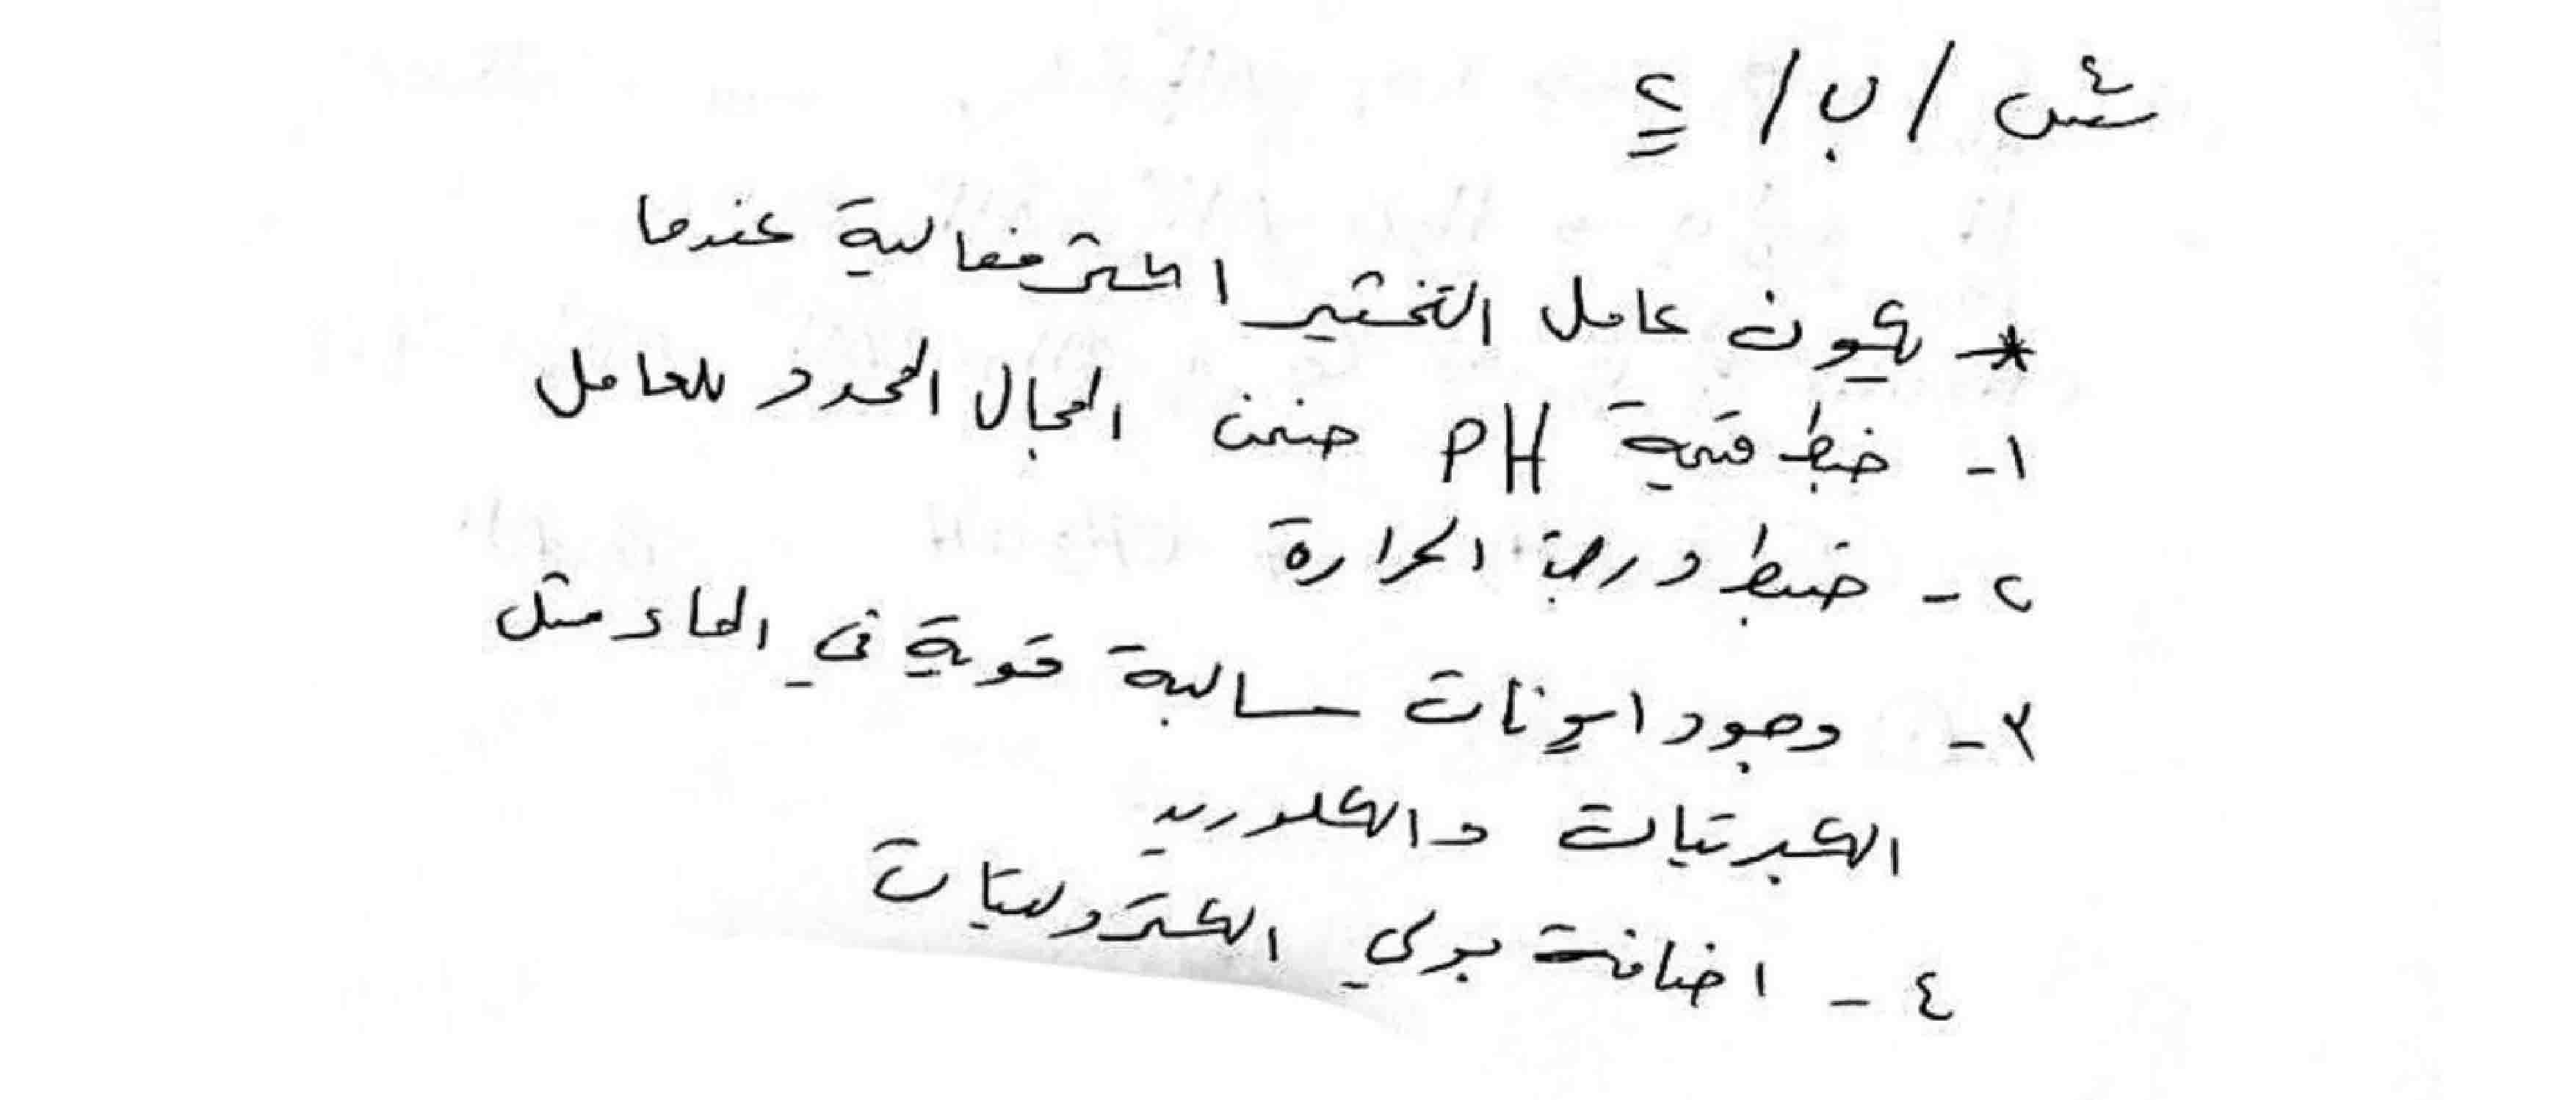 س٤ / ب / ٢
* يكون عامل التخثير اكثر فعالية عندما
١- ضبط قيمة PH ضمن المجال المحدد للعامل
٢- ضبط درجة الحرارة
٣- وجود ايونات سالبة قوية في الماء مثل
الكبرتيات والكلوريد
٤- اضافة بولي الكتروليتات